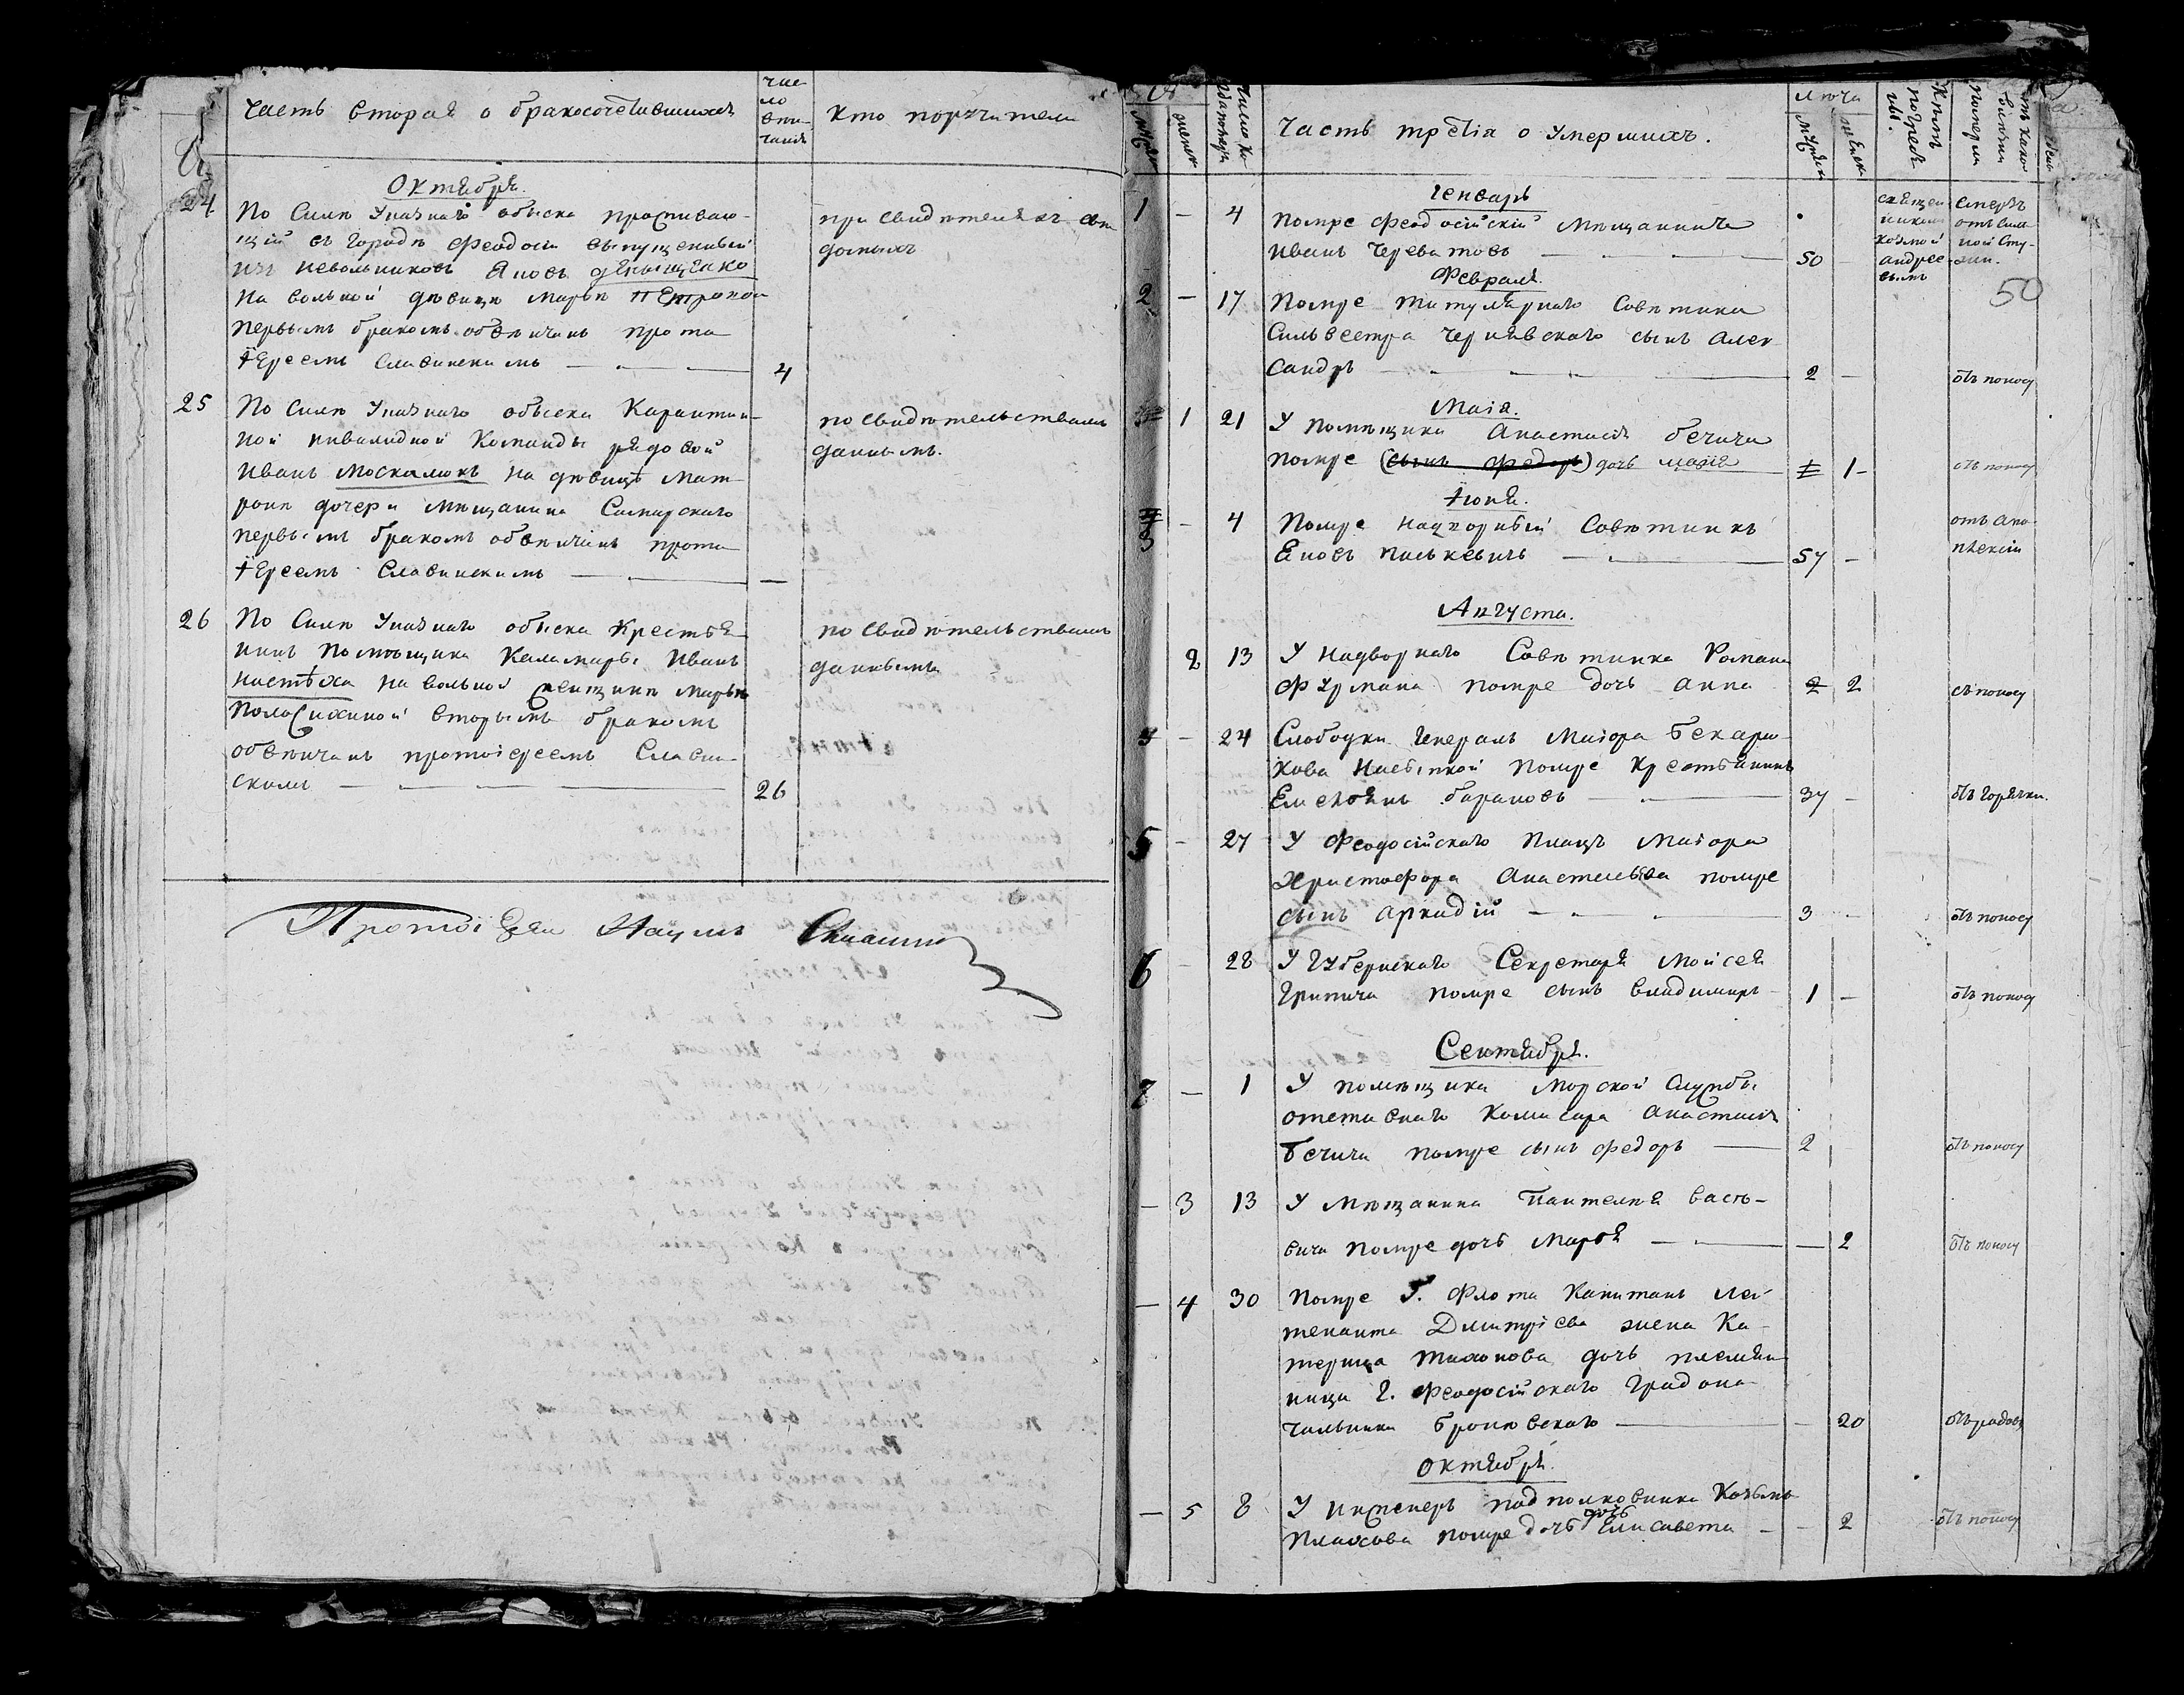 Часть вторая о бракосочетавшихся
Чис
ло
вѣн
чанія
Кто поручители
Октября.
24
По Силѣ Указнаго обыска проживаю-
щій въ Городѣ Феодосіи выпущенный
изъ невольниковъ Яковъ
на вольной дѣвицѣ Марьѣ Петровой
первымъ бракомъ обвѣнчанъ прото
Іереемъ Славинскимъ
4
при свидѣтеляхъ
25
По Силѣ Указнаго обыска Карантин-
ной инвалидной Команды рядовой
Иванъ Москалюкъ на дѣвицѣ Мат-
ронѣ дочери мѣщанина Самарскаго
первымъ бракомъ обвѣнчанъ прото
Іереемъ Славинскимъ
—
по свидѣтельствамъ
даннымъ.
26
По Силѣ Указнаго обыска Крестья-
нинъ Помѣщика Каламары Иванъ
на вольной женщинѣ Марьѣ
вторымъ бракомъ
обвѣнчанъ протоіереемъ Славин-
скимъ
26
по свидѣтельствамъ
даннымъ
Протоіерей Наумъ
Число ко-
Часть третія о Умершихъ.
Лѣта
мужеск
женск
Кѣмъ
погребе
ны.
Генварь
1 — 4
Помре Феодосійскій Мѣщанинъ
Иванъ Череватовъ
50
священ
никомъ
Козмой
Андрее-
вымъ
смерть
отъ силь
ной Сту-
жи.
50
Февраля.
2 — 17
Помре титулярнаго Совѣтника
Сильвестра Чернявскаго сынъ Алек
сандръ
2 —
отъ поносу
Маія.
1 21
У помѣщика Анастасія Бечича
помре (сынъ Федоръ) дочь
1 —
отъ поносу
Іюня.
3 — 4
Помре надворный Совѣтникъ
Яковъ Паськевичъ
57 —
отъ апо-
плексіи
Августа.
2 13
У Надворнаго Совѣтника Романа
Фурмана помре дочь Анна
2 2
съ поносу
— 24
Слободки Генералъ Маіора Бекарю-
кова Насыпкой помре крестьянинъ
Емельянъ Барановъ
37 —
отъ горячки.
5 — 27
У Феодосійскаго Плацъ Маіора
Христофора Анастасьева помре
сынъ Аркадій
3 —
отъ поносу
6 28
У Губернскаго Секретаря Мойсея
Грипича помре сынъ Владимиръ
1 —
отъ поносу
Сентября.
7 — 1
У помѣщика Морской Службы
отставнаго Комисара Анастасія
Бечича помре сынъ Федоръ
2
отъ поносу
— 3 13
У Мѣщанина Пантелѣя Вась-
вича помре дочь Марья
— 2
отъ поносу
— 4 30
Помре Г. Флота Капитанъ Лей
тенанта Дмитріева жена Ка-
терина Тихонова дочь племян
ница Г. Феодосійскаго Градона-
чальника Броневскаго
— 20
отъ родовъ
Октября.
— 5 8
У Инженеръ подполковника Козьмы
Плахова помре дочь дочь Елисавета
— 2
отъ поносу